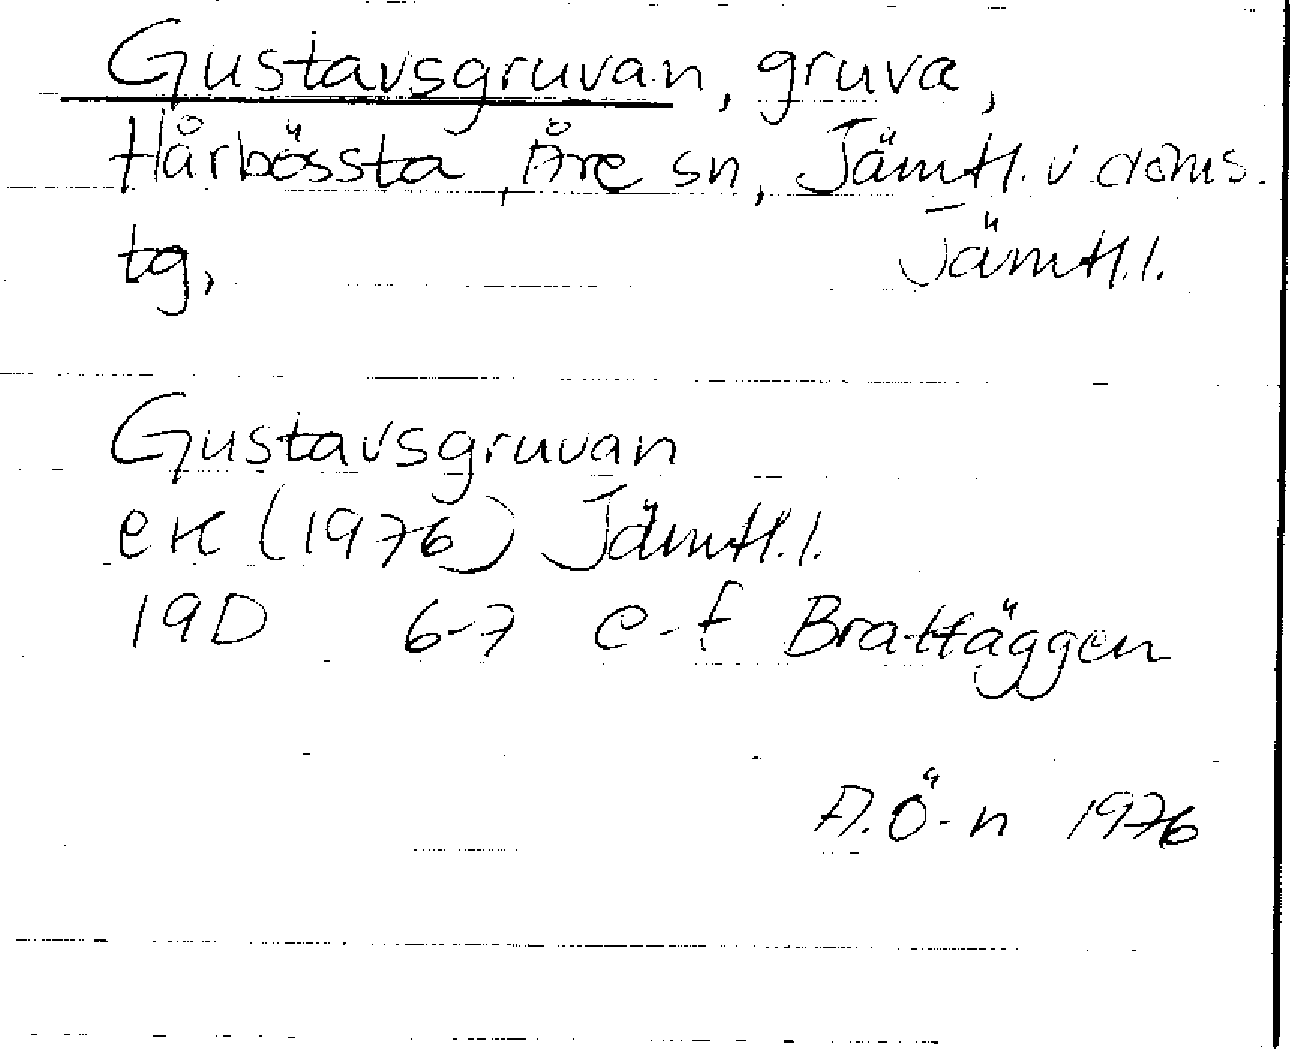 Gustavsgruvan, gruva,
Hårbössta, Åre sn, Jämtl. v doms.
tg, Jämtl.l.
Gustavsgruvan
ek (1976) Jämtl.l.
19D 6-7 e-f Brattäggen
A.Ö-n 1976